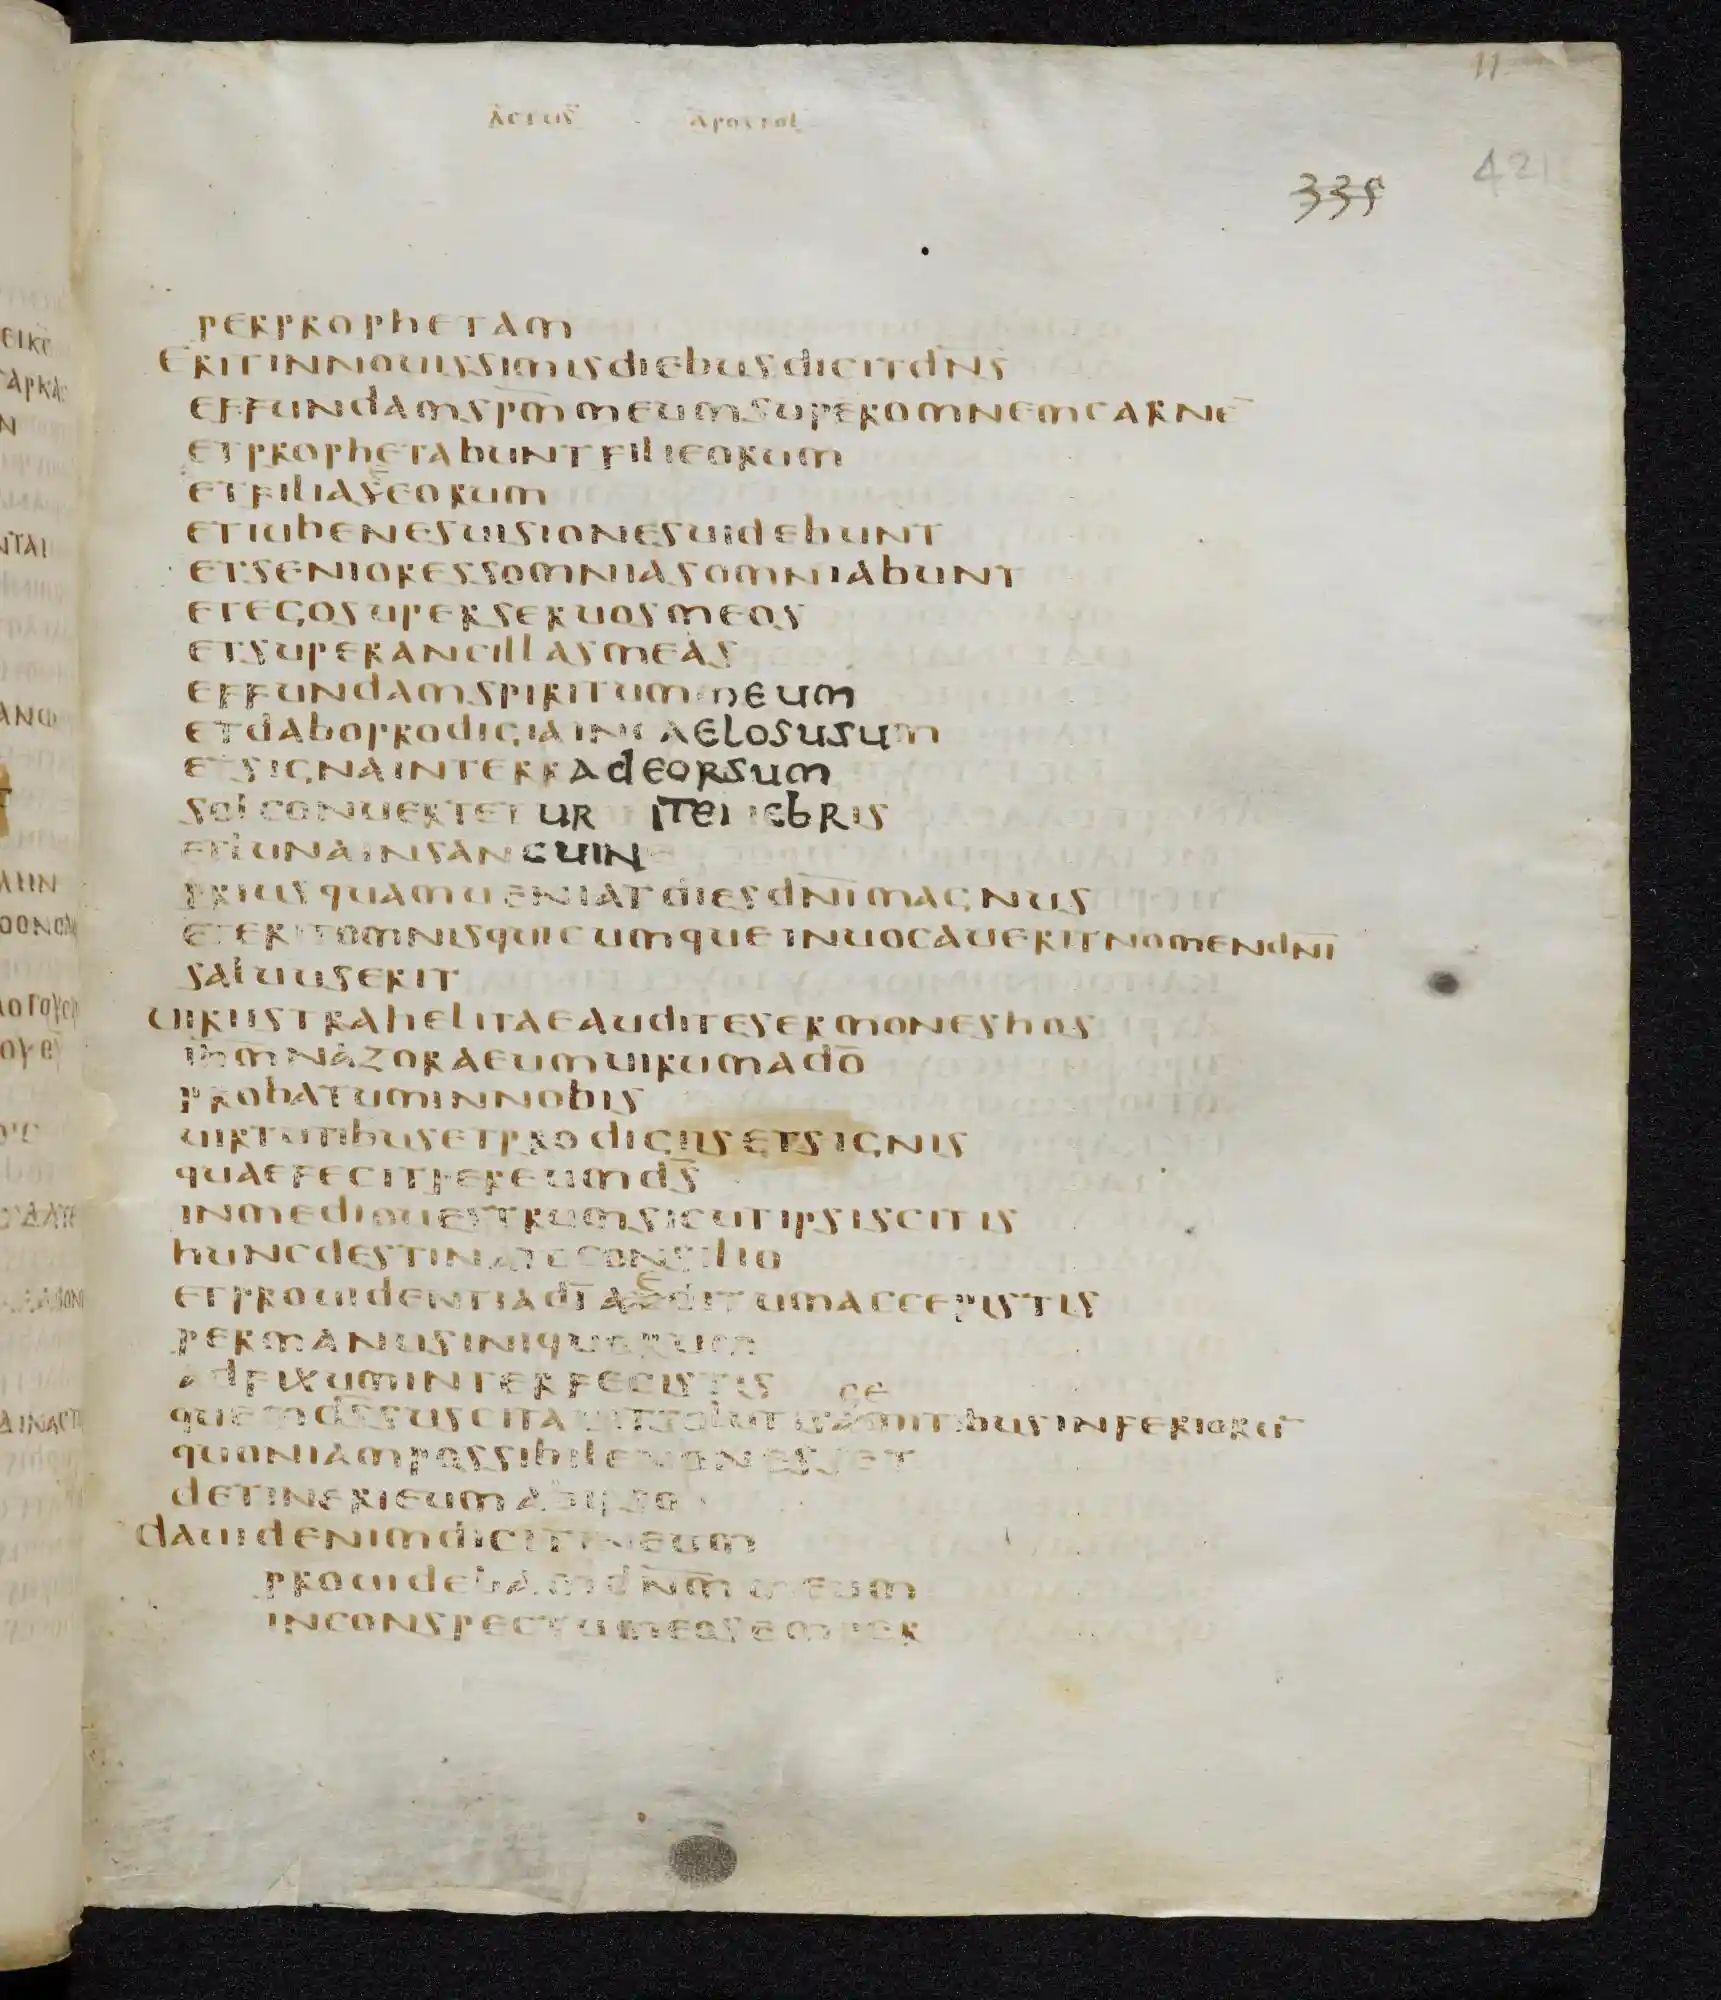 11
ACTUS APOSTOL
421
335
PERPROPHETAM
ERITINNOUISSIMISDIEBUSDICITDN̅S
EFFUNDAMSPM̅MEUMSUPEROMNEMCARNE̅
ETPROPHETABUNTFILIEORUM
ETFILIASEORUM
ETIUBENESUISIONESUIDEBUNT
ETSENIORESSOMNIASOMNIABUNT
ETEGOSUPERSERUOSMEOS
ETSUPERANCILLASMEAS
EFFUNDAMSPIRITUMMEUM
ETDABOPRODIGIAINCAELOSUSUM
ETSIGNAINTERRADEORSUM
SOLCONUERTETUR ITENEBRIS
ETLUNAINSANGUINE
PRIUSQUAMUENIATDIESDN̅IMAGNUS
ETERITOMNISQUICUMQUEINUOCAUERITNOMENDN̅I
SALUUSERIT
UIRIISTRAHELITAEAUDITESERMONESHOS
IHM̅NAZORAEUMUIRUMADO̅
PROBATUMINNOBIS
UIRTUTIBUSETPRODIGIISETSIGNIS
QUAEFECITPEREUMDS̅
INMEDIOUESTRUMSICUTIPSISCITIS
HUNCDESTINATOCONSILIO
ETPROUIDENTIADI̅ADITUMACCEPISTIS
PERMANUSINIQUORUM
ADFIXUMINTERFECISTIS
QUEMDS̅SUSCITAUIT GEMITIBUSINFERIORU̅
QUONIAMPOSSIBILENONESSET
DETINERIEUMABIPSO
DAUIDENIMDICITINEUM
PROUIDEBAMDN̅M̅MEUM
INCONSPECTUMEOSEMPER